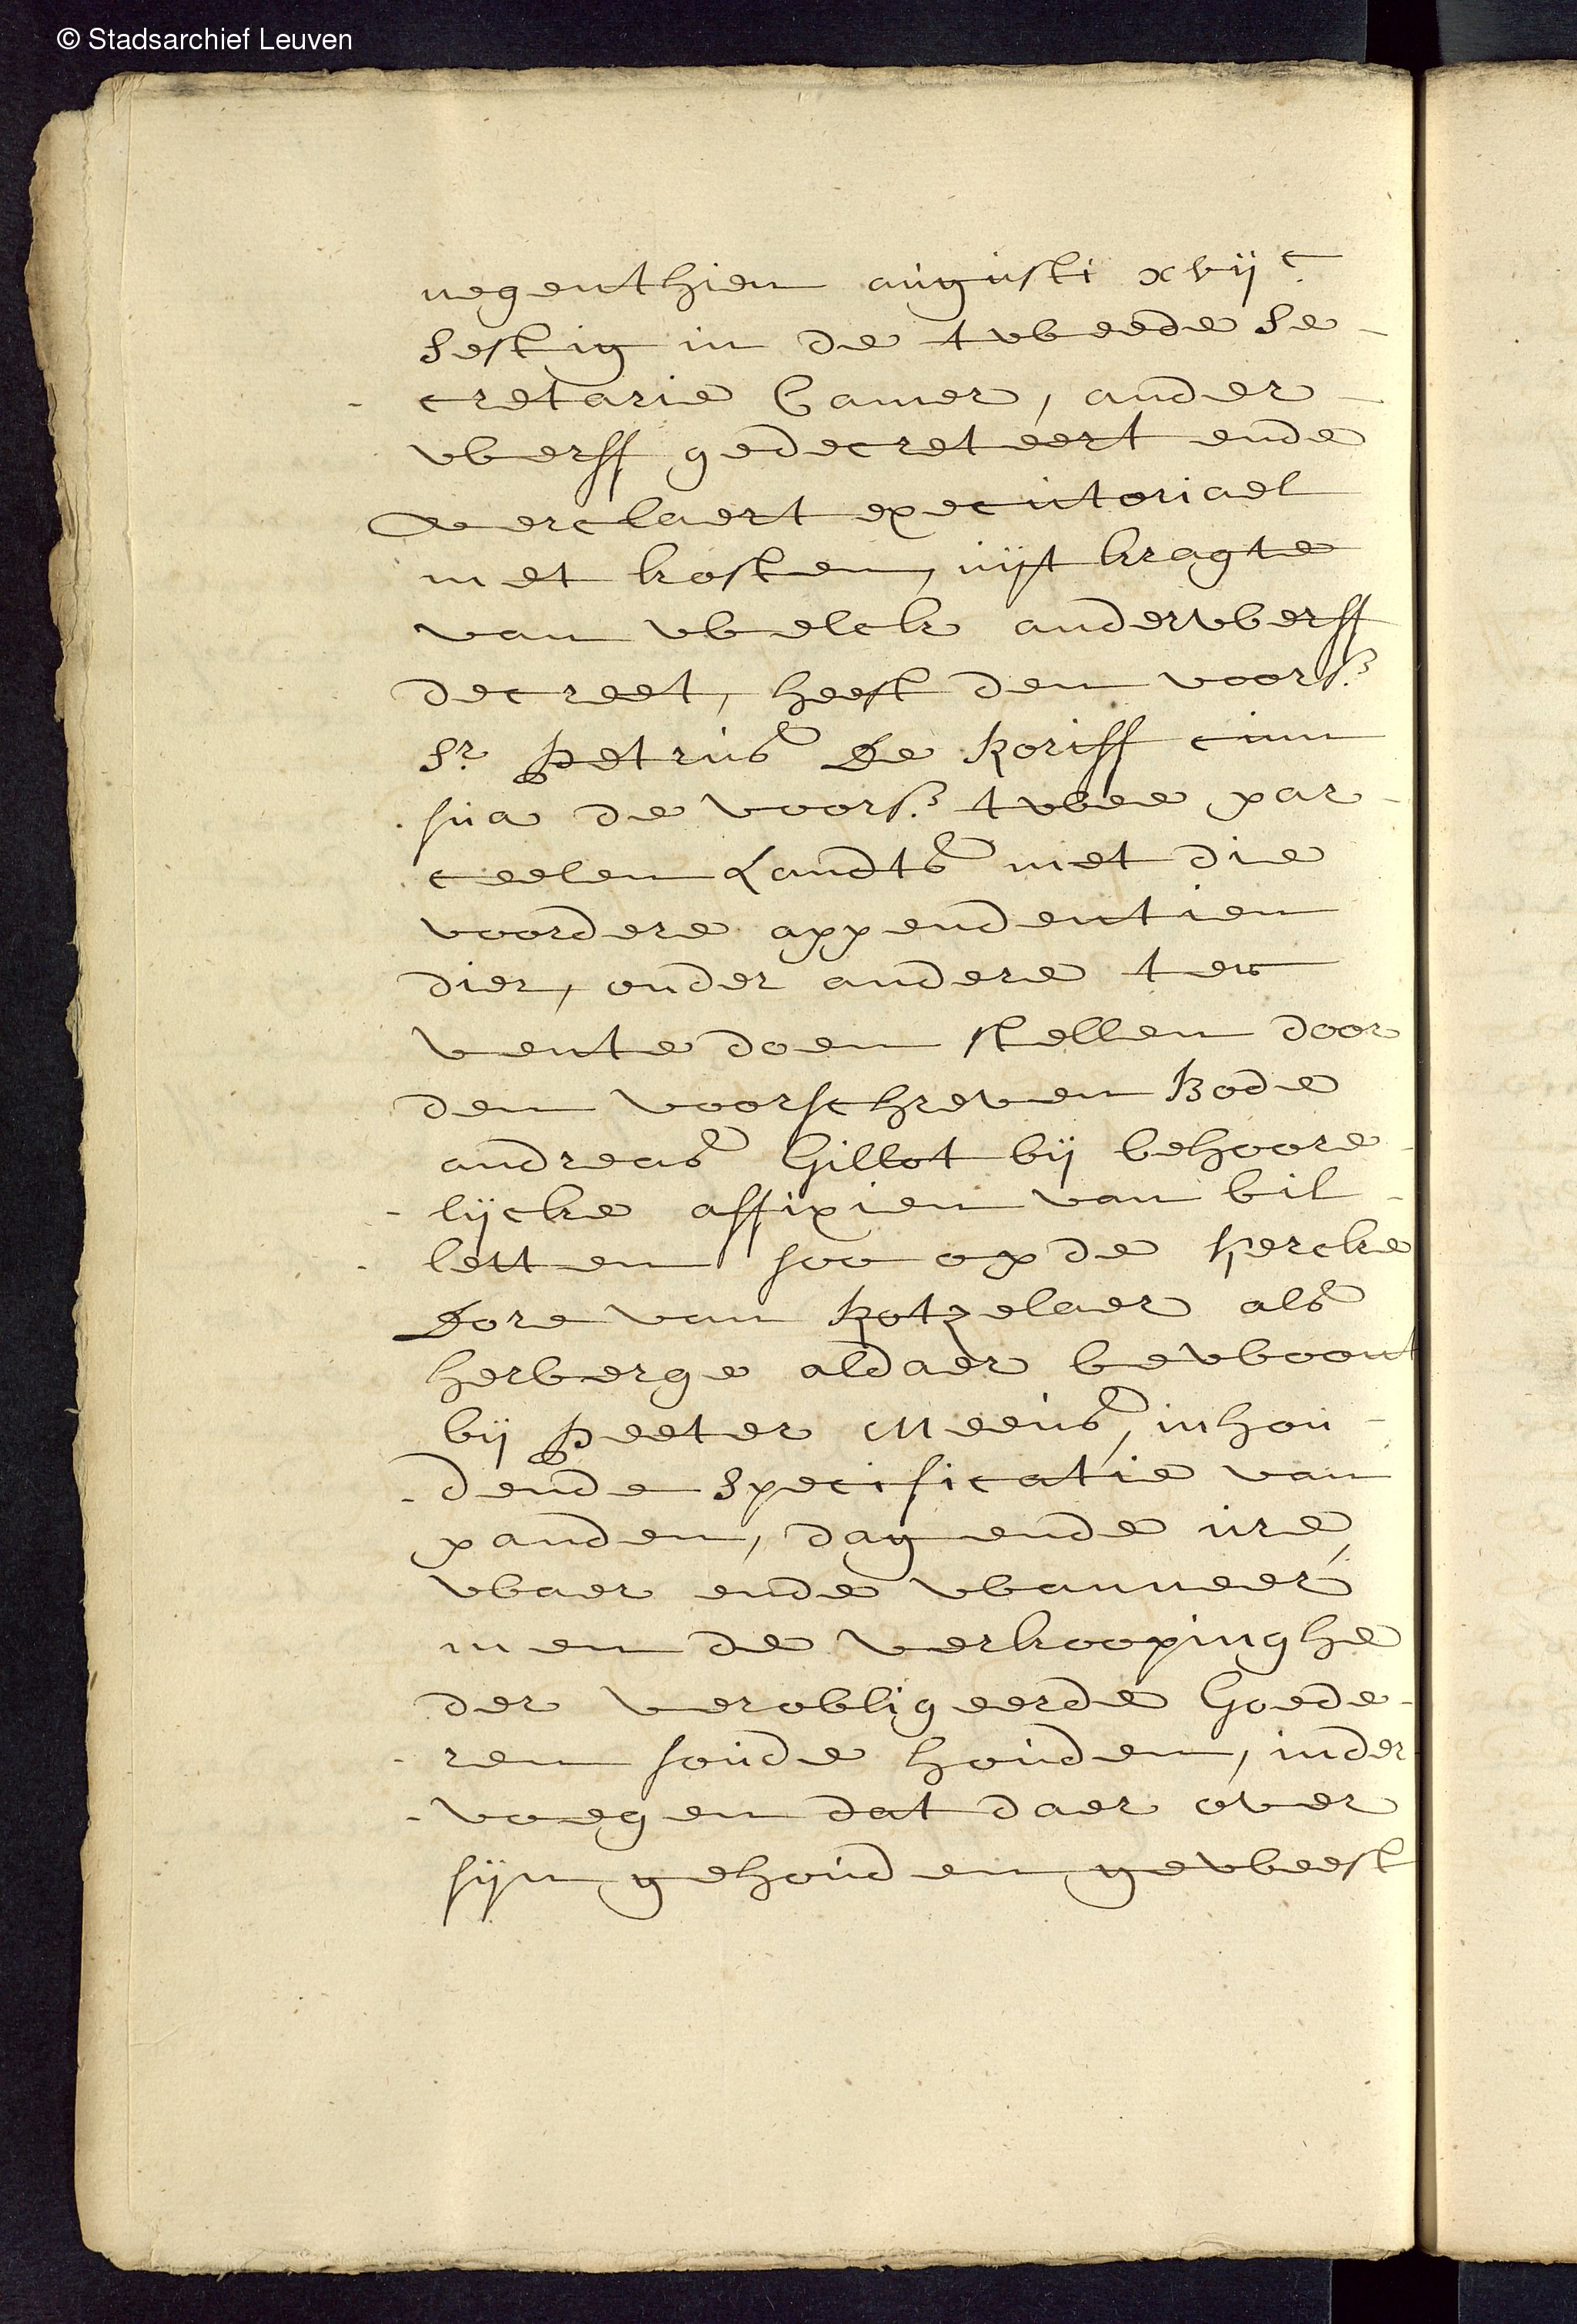 © Stadsarchief Leuven
negenthien augusti xvijc
sestig in de tweede se-
cretarie Camer, ander
werff gedecreteert ende
verclaert executoriael
met kosten, uijt kragte
van welck anderwerff
decreet, heeft den voors.
Sr. Petrus De Koriff cum
sua de voors. twee par-
ceelen Landts met die
voordere appendentien
dier, onder andere ter
vente doen stellen door
den voorschreven Bode
andreas Gillot bij behoore-
lijcke affixien van bil-
letten soo op de kercke
Dore van Rotzelaer als
herberge aldaer bewoont
bij Peeter Meeus, inhou-
dende specificatie van
panden, dag ende ure,
waer ende wanneer
men de verkoopinghe
der verobligeerde Goede-
ren soude houden, inder-
voegen dat daer over
sijn gehouden geweest